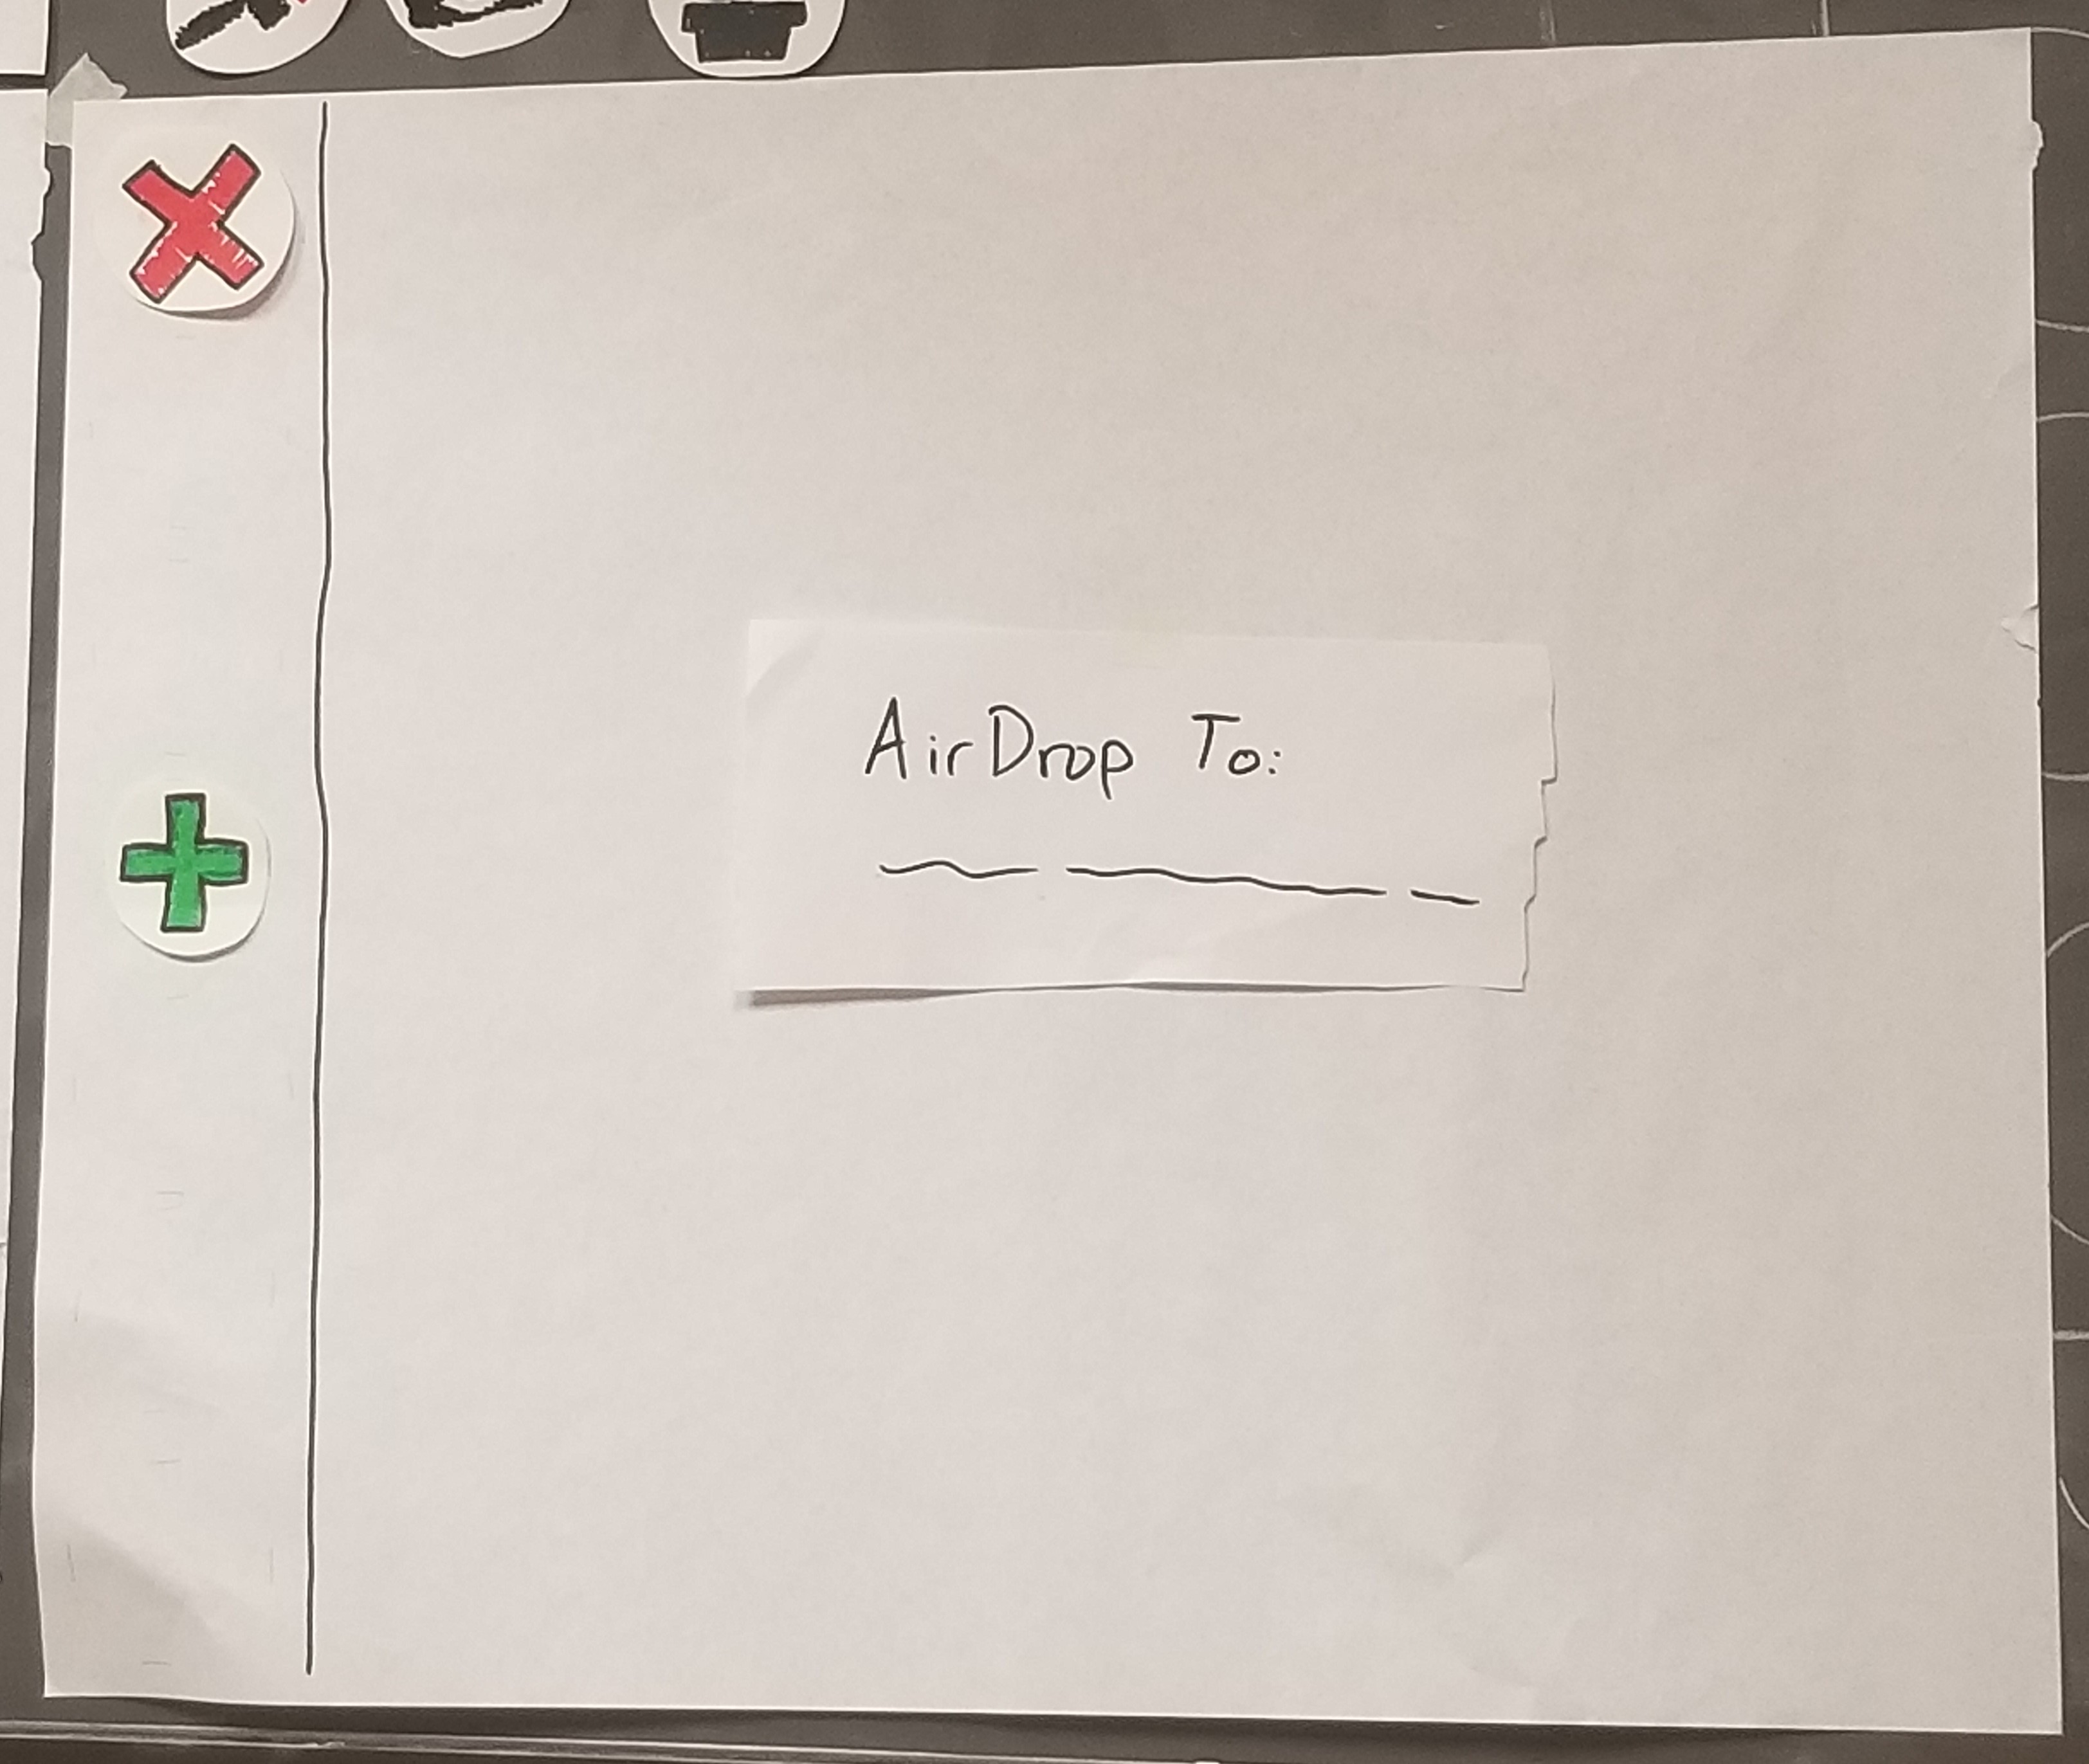 AirDrop To: